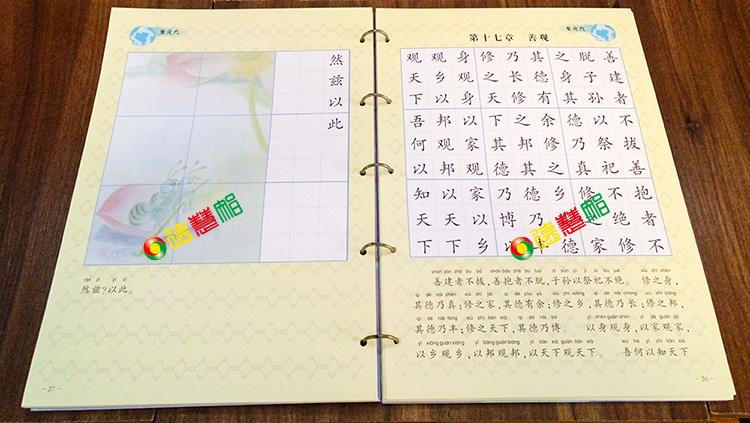 第十七章 善观
善建者不拔善抱者不
脱子孙以祭祀不绝修
之身其德乃真修之家
其德有余修之乡其德
乃长修之邦其德乃丰
修之天下其德乃博以
身观身以家观家以乡
观乡以邦观邦以天下
观天下吾何以知天下
善建者不拔，善抱者不脱，子孙以祭祀不绝。 修之身，
其德乃真；修之家，其德有余；修之乡，其德乃长；修之邦，
其德乃丰；修之天下，其德乃博。 以身观身，以家观家，
以乡观乡，以邦观邦，以天下观天下。 吾何以知天下
- 26 -
然兹以此
rán zī yǐ cǐ
然兹？以此。
- 27 -
德慧智
德慧智